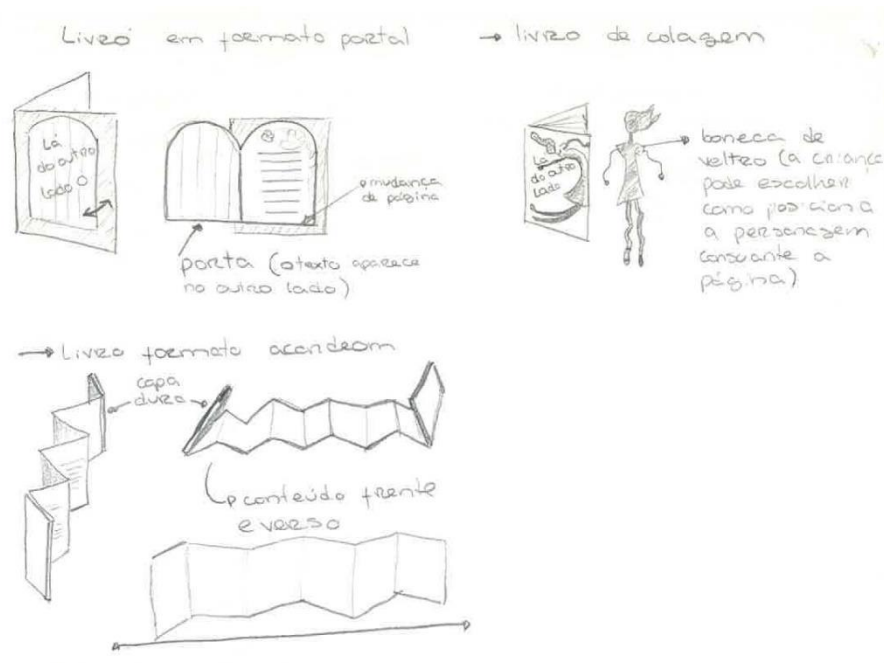 Livro em formato portal
Lá
do outro
lado
mudança
de página
porta (o texto aparece
no outro lado)
→ livro de colagem
Lá
do outro
lado
boneca de
veltro (a criança
pode escolher
como posiciona
a personagem
consoante a
página)
→ Livro formato acordeom
capa
dura
conteúdo frente
e verso